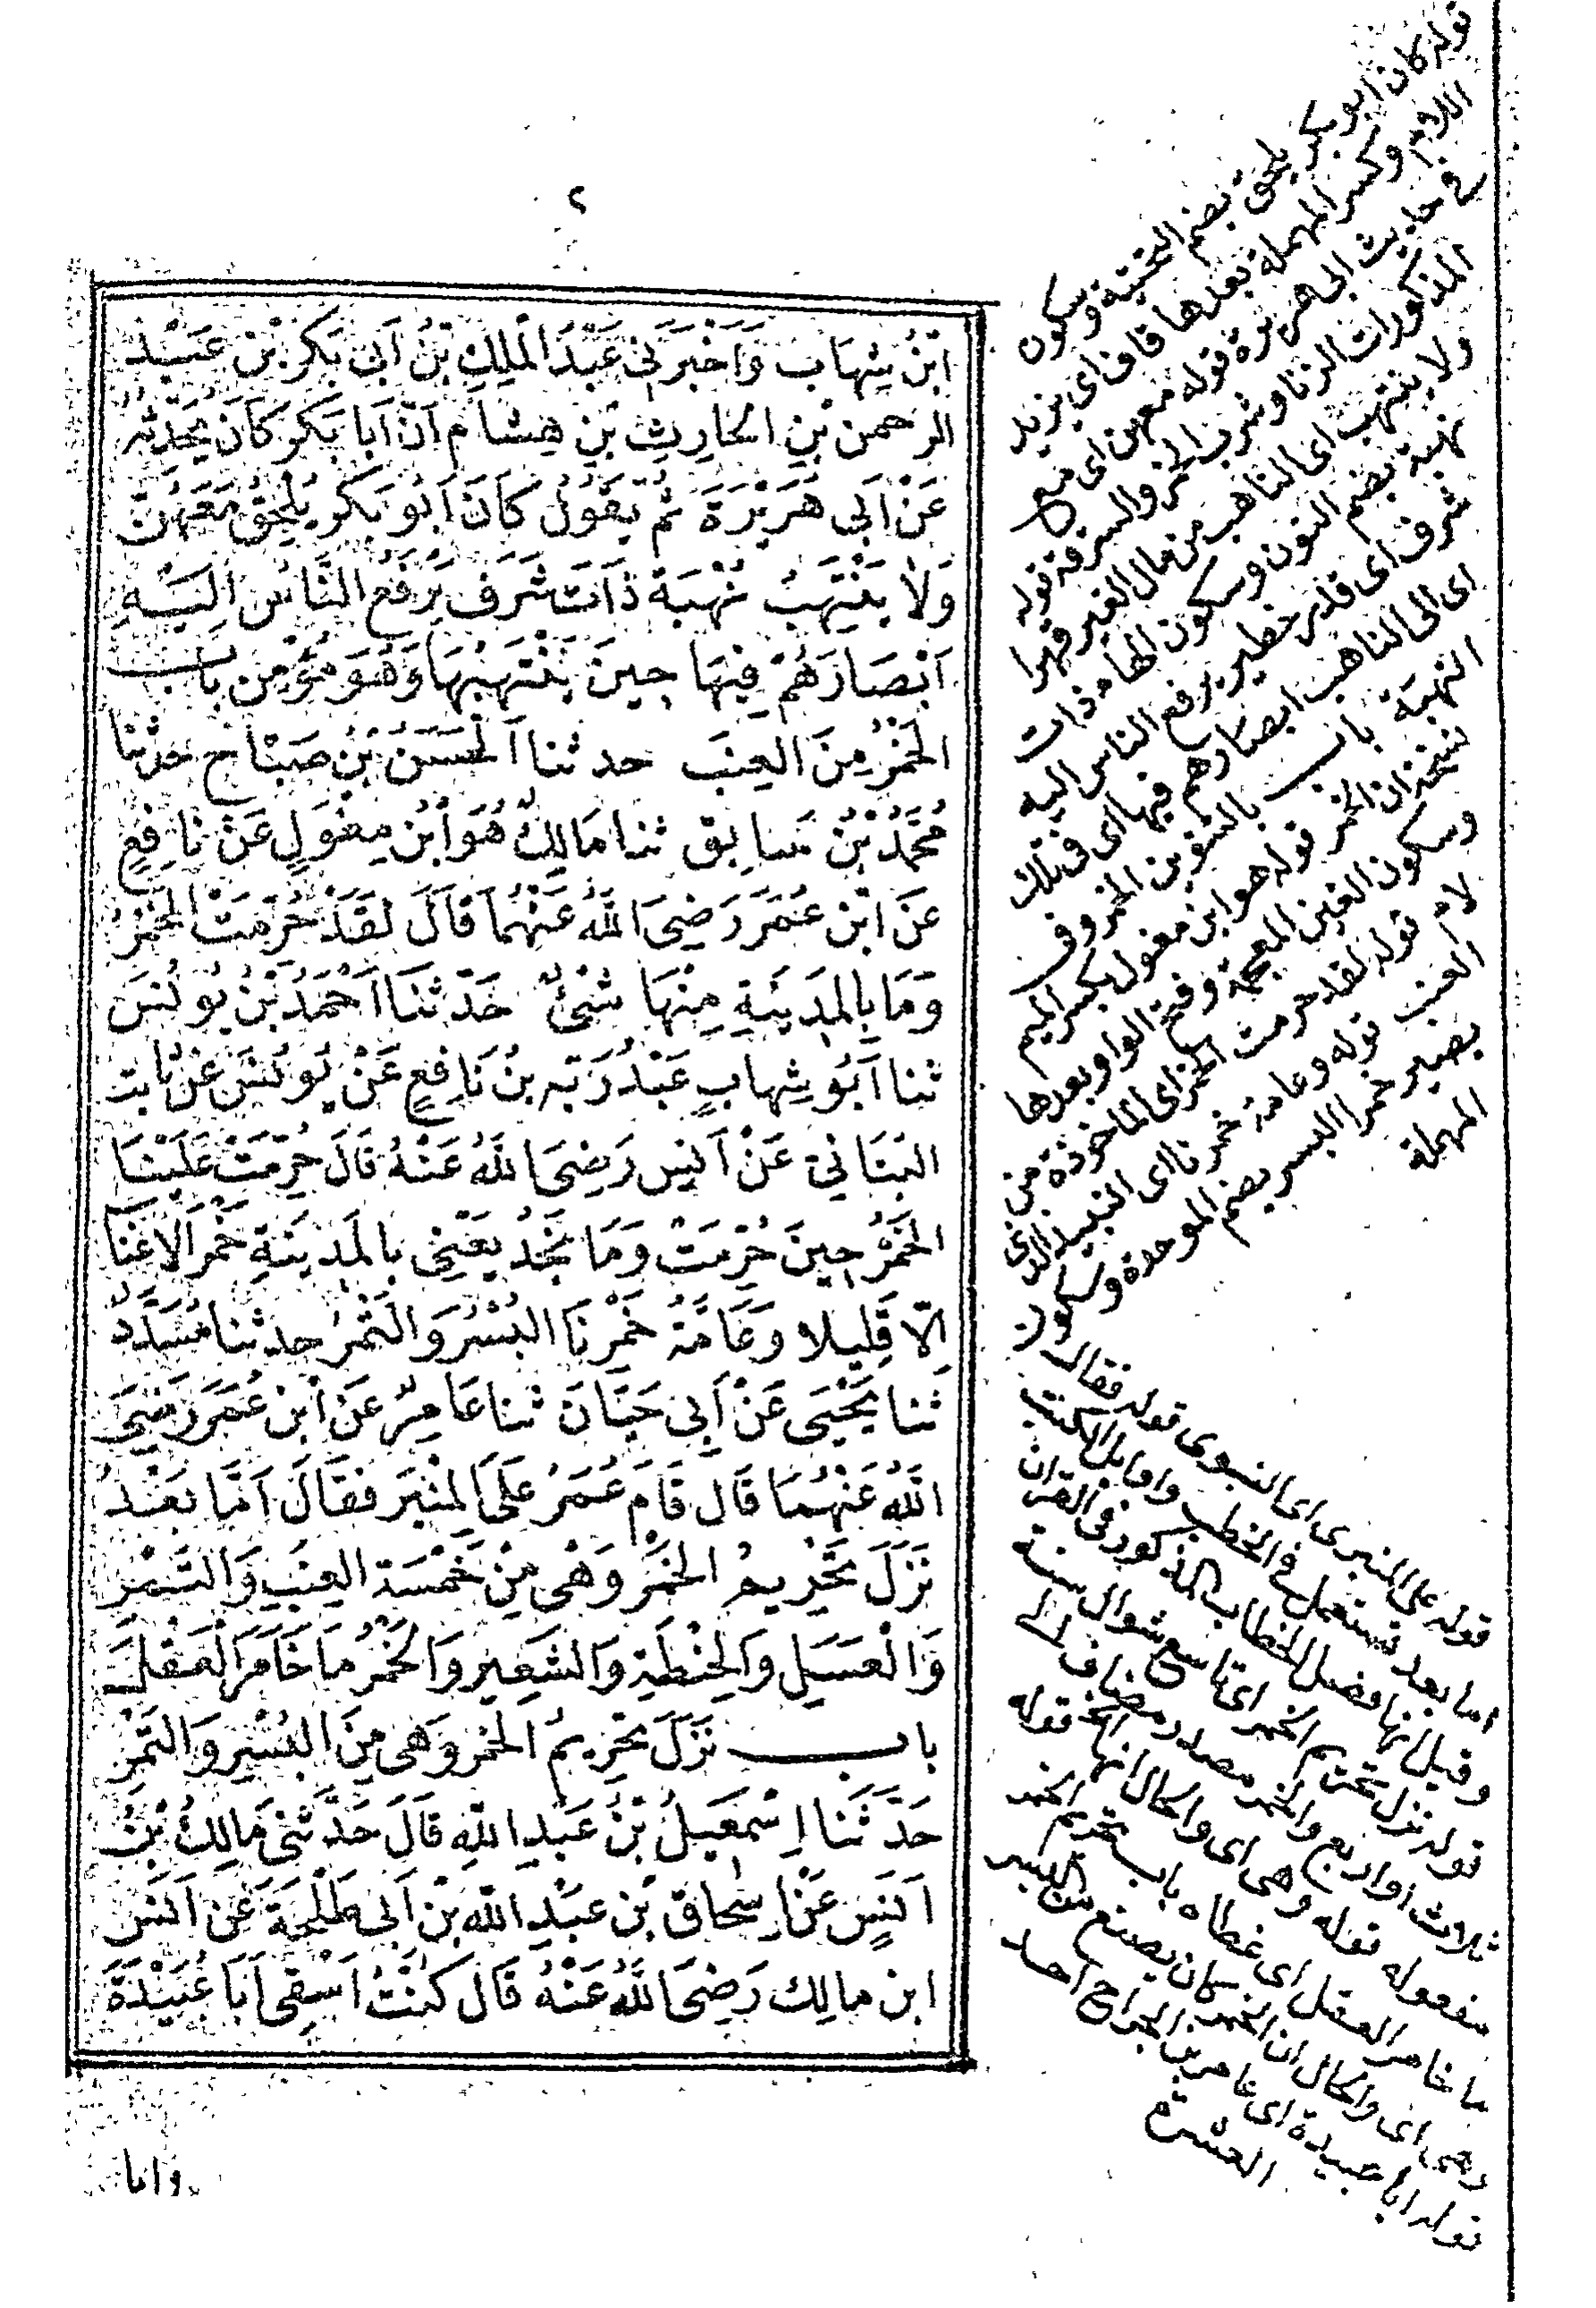 ٢
ابْنُ شِهَابٍ وَأَخْبَرَنِى عَبْدُ الْمَلِكِ بْنُ أَبِى بَكْرِ بْنِ عَبْدِ
الرحمن بْنِ الحَارِثِ بْنِ هِشَامٍ اَنَّ اَبَا بَكْرٍ كَانَ يُحَدِّثُهُ
عَنْ اَبِى هُرَيْرَةَ ثُمَّ يَقُولُ كَانَ اَبُو بَكْرٍ يُلْحِقُ مَعَهُنَّ
وَلَا يَنْتَهِبُ نُهْبَةً ذَاتَ شَرَفٍ يَرْفَعُ النَّاسُ اِلَيْهِ
اَبْصَارَهُمْ فِيهَا حِينَ يَنْتَهِبُهَا وَهُوَ مُؤْمِن بَاب
الخَمْرُ مِنَ العِنَبِ حدثنا الْحَسَنُ بْنُ صَبَّاح حدثنا
مُحَمَّدُ بْنُ سَابِق ثنا مَالِكٌ هُوَ ابْنُ مِغْوَلٍ عَنْ نَافِعٍ
عَنِ ابْنِ عُمَرَ رَضِىَ اللهُ عَنْهُمَا قَالَ لَقَدْ حُرِّمَتْ الخَمْرُ
وَمَا بِالمَدِينَةِ مِنْهَا شَىْءٌ حَدَّثَنَا اَحْمَدُ بْنُ يُونُسَ
ثنا اَبُو شِهَابٍ عَبْدُ رَبِّهِ بنُ نَافِعٍ عَنْ يُونُسَ عَنْ ثَابِت
البُنَانِىِّ عَنْ اَنَسٍ رَضِىَ اللهُ عَنْهُ قَالَ حُرِّمَتْ عَلَيْنَا
الخَمْرُ حِينَ حُرِّمَتْ وَمَا نَجِدُ يَعْنِى بِالمَدِينَةِ خَمْرَ الاَعْنَابِ
اِلَّا قَلِيلا وَعَامَّةُ خَمْرِنَا البُسْرُ وَالتَّمْرُ حدثنا مُسَدَّدٌ
ثنا يَحْيَى عَنْ اَبِى حَيَّانَ ثنا عَامِرٌ عَنِ ابْنِ عُمَرَ رَضِىَ
اللهُ عَنْهُمَا قَالَ قَامَ عُمَرُ عَلَى المِنْبَرِ فَقَالَ اَمَّا بَعْدُ
نَزَلَ تَحْرِيمُ الخَمْرِ وَهْىَ مِنْ خَمْسَة العِنَبِ وَالتَّمْرِ
وَالْعَسَلِ وَالحِنْطَةِ وَالشَعِيرِ وَالخَمْرُ مَا خَامَرَ الْعَقْلَ
باب نَزَلَ تَحْرِيمُ الخمرِ وَهِىَ مِنَ البُسْرِ وَالتَّمْرِ
حَدَّثَنَا اِسْمَعِيلُ بْنُ عَبْدِ اللهِ قَالَ حَدَّثَنِى مَالِكُ بْنُ
اَنَسٍ عَنْ اِسْحَاقَ بْنِ عَبْدِ اللهِ بْنِ اَبِى طَلْحَةَ عَنْ اَنَسِ
ابن مالِك رَضِىَ اللهُ عَنْهُ قَالَ كُنْتُ اَسْقِى اَبَا عُبَيْدَةَ
واما
قوله كان ابو بكر يلحق بضم التحتية وسكون
اللام وكسر المهملة بعدها قاف اى يزيد
فى حديث ابى هريرة قوله معهن اى مع
المذكورات الزنا وشرب الخمر والسرقة قوله
ولا ينتهب اى الناهب من مال الغير قهرا
نهبة بضم النون وسكون الهاء ذات
شرف اى قدر خطير يرفع الناس اليه
اى الى الناهب ابصارهم فيها اى فى تلك
النهبة باب بالتنوين الخمر وفى
نسخة ان الخمر قوله هو ابن مغول بكسر الميم
وسكون الغين المعجمة وفتح الواو بعدها
لام قوله لقد حرمت الخمر اى الماخوذة من
العنب قوله وعامة خمرنا اى النبيذ الذى
يصير خمرا البسر بضم الموحدة وسكون
المهملة
قوله على المنبر اى النبوى قوله فقال
اما بعد تستعمل فى الخطب واوايل الكتب
وقيل انها فصل الخطاب المذكور فى القران
قوله نزل تحريم الخمر اى تاسع شوال سنة
ثلاث او اربع والخمر مصدر مضاف الى
مفعوله قوله وهى اى والحال انها الخ قوله
ما خامر العقل اى غطاه باب تحريم الخمر
وهى اى والحال ان الخمر كان يصنع من البسر
قوله ابا عبيدة اى عامر بن الجراح احد
العشرة